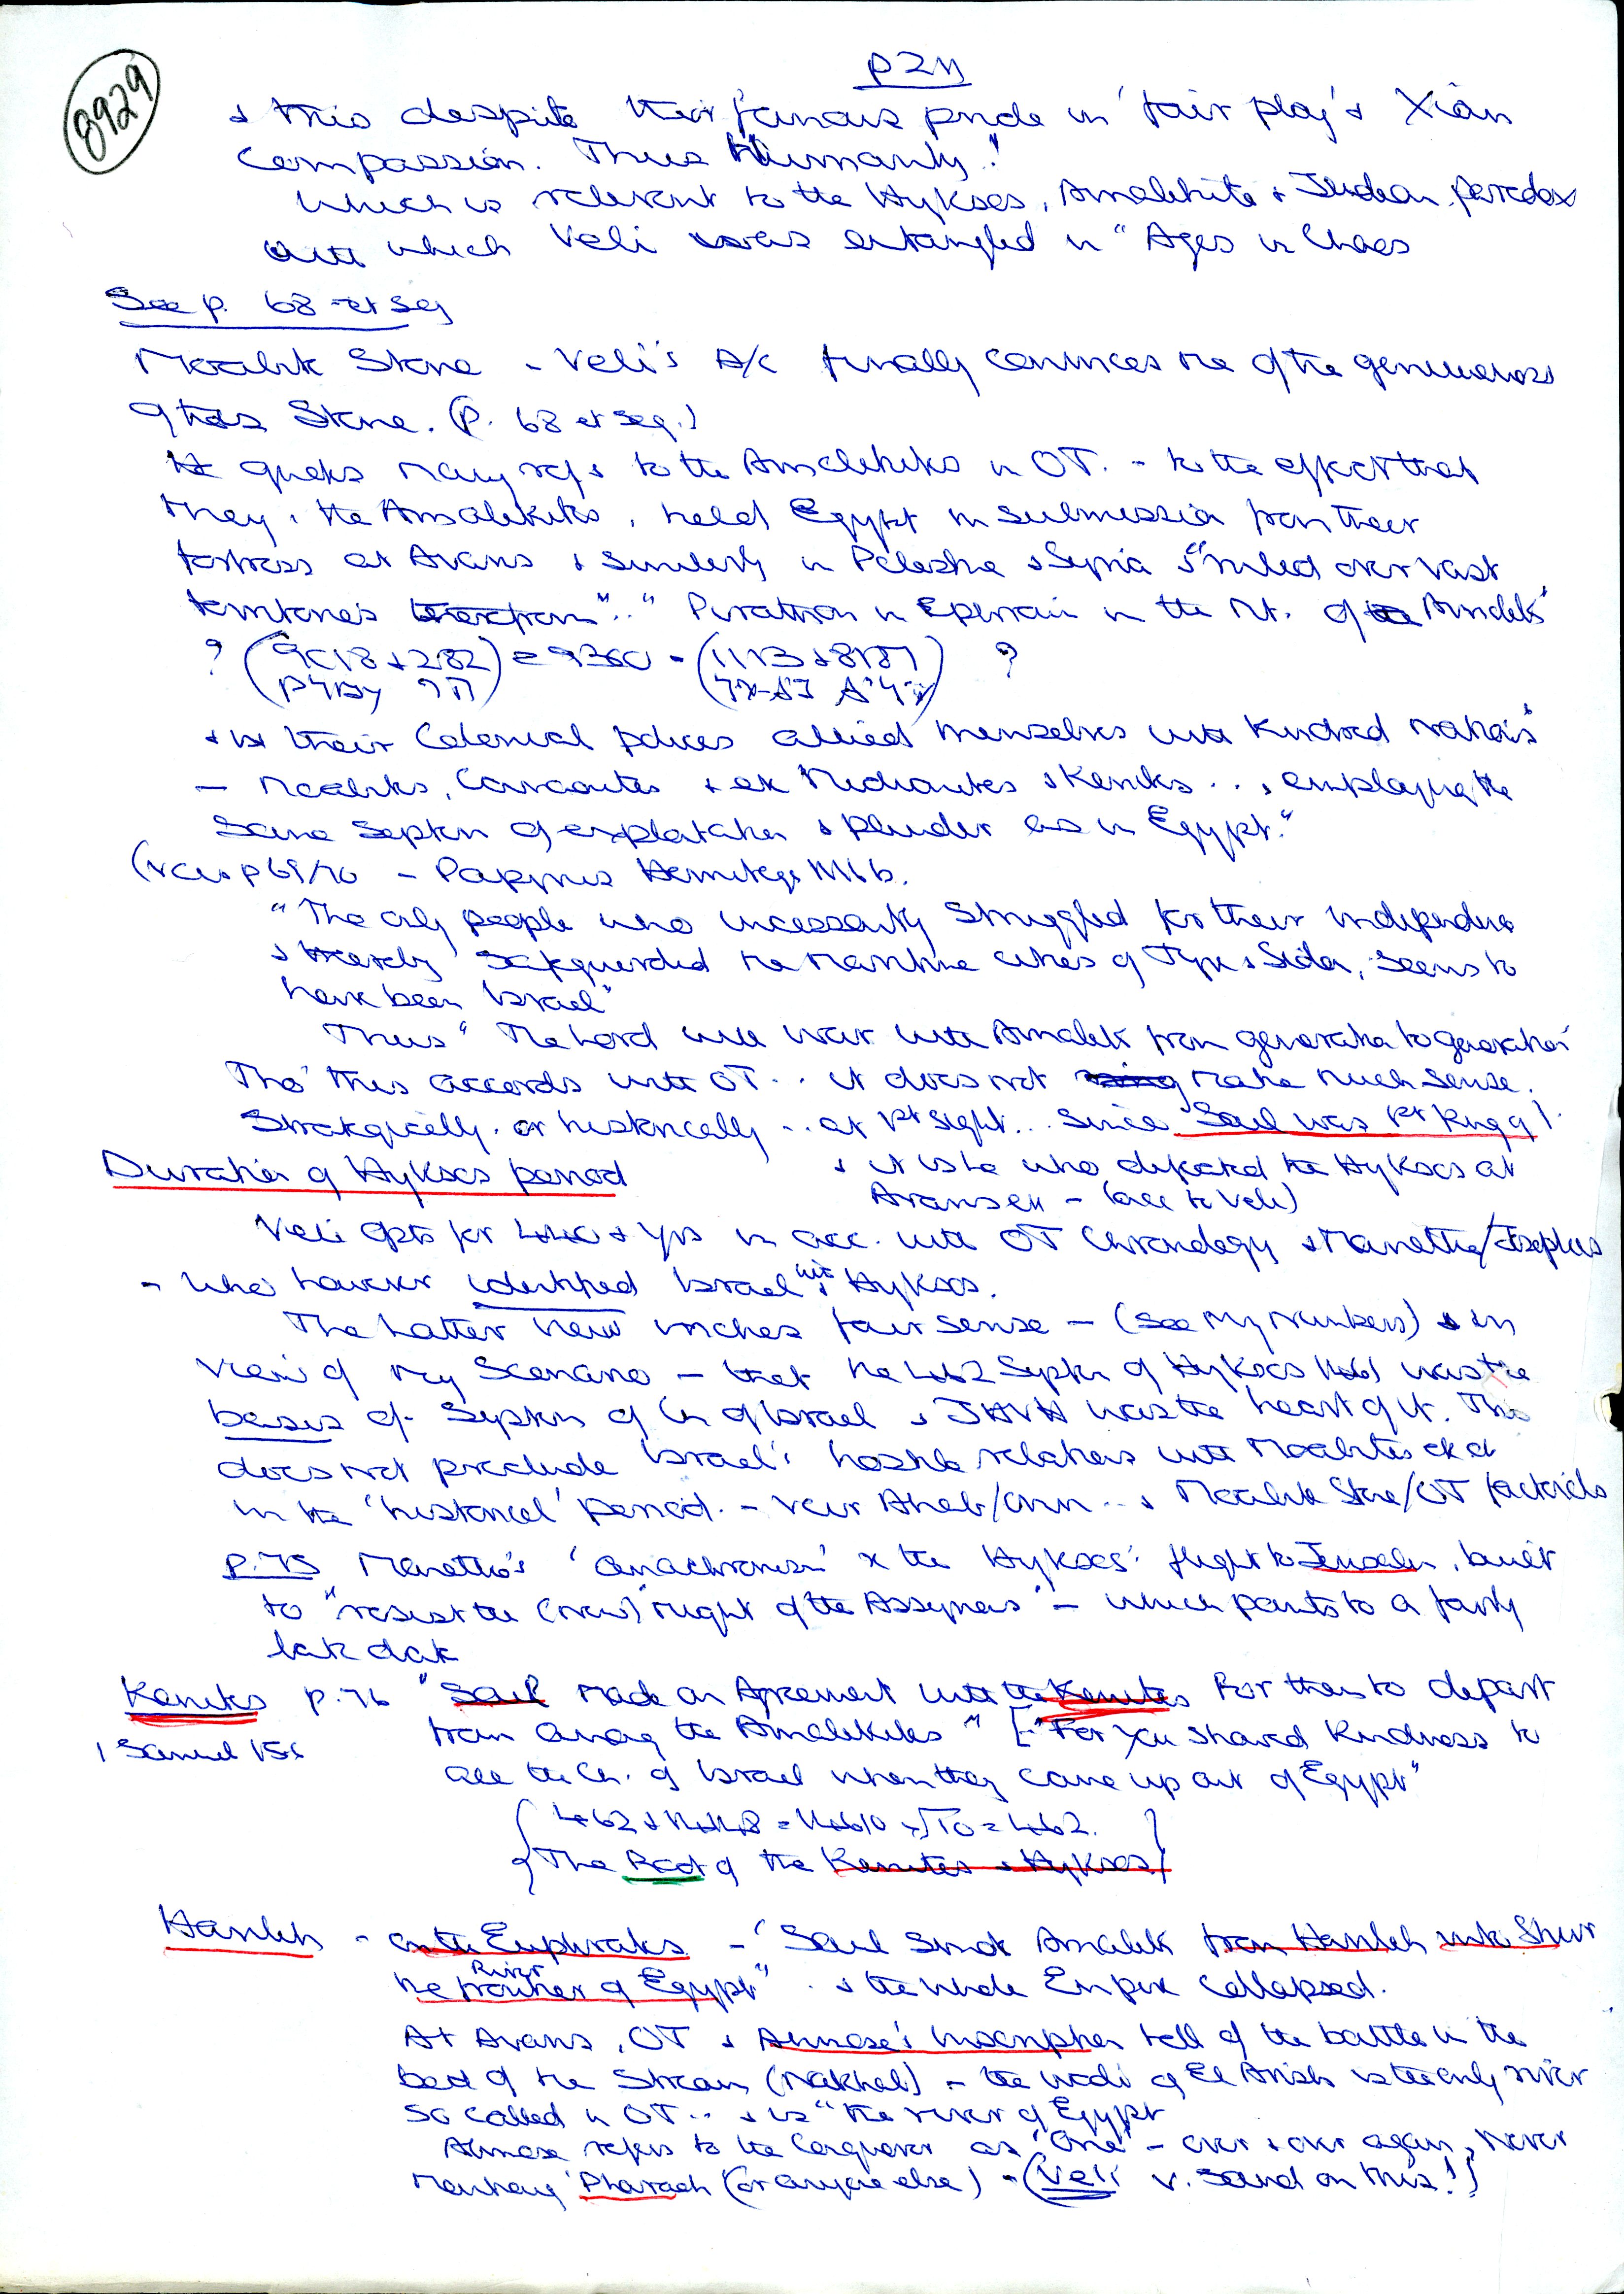 8929
& this despite their famous pride in 'fair play' & Xian
Compassion. Thus Humanity!
Which is relevant to the Hyksos, Amalekite & Judean paradox
with which Veli was entangled in "Ages in Chaos
See p. 68 et seq
Moabite Stone - Veli's A/c finally convinces me of the genuineness
of this Stone. (p. 68 et seq.)
He quotes many refs to the Amalekites in OT. - to the effect that
they, the Amalekites, held Egypt in submission from their
fortress at Avaris & similarly in Palestine & Syria & "ruled over vast
territories therefrom".. " Pirathon in Ephraim in the Mt. of the Amalek'
? ( + 282) = 9360 - ( ) ?
their Colonial policies allied themselves with Kindred Nations"
- Moabites, & ex Midianites & Kenites .. , employing the
Same System of exploitation & plunder as in Egypt."
( p 69/70 - Papyrus Hermitage 1116 b.
"The only people who incessantly struggled for their independence
& thereby safeguarded the maritime cities of Tyre & Sidon, seems to
have been Israel"
Thus "The Lord will war with Amalek from generation to generation'
Tho' this accords with OT.. it does not make much sense.
Strategically. or historically .. at 1st sight... Since Saul was 1st King of I.
Duration of Hyksos period
& it is he who defeated the Hyksos at
Avaris - (acc to Veli)
Veli opts for 440 + yrs in acc. with OT Chronology & Manetho/Josephus
- who however identified Israel with Hyksos.
The latter view makes fair sense - (see my numbers) & in
view of my Scenario - that the 462 System of Hyksos was the
basis of System of Ch of Israel & JHVH was the heart of it. This
does not preclude Israel's hostile relations with Moabites
in the 'historical' period. - Ahab/Omri .. & Moabite Stone/OT
p. 75 Manetho's 'anachronism' x the Hyksos' flight to Jerusalem, built
to "resist the (new) might of the Assyrians" - which points to a fairly
late date
Kenites p. 76 "Saul made an Agreement with the Kenites for them to depart
from among the Amalekites" ["For you showed Kindness to
1 Samuel 15:6
all the Ch. of Israel when they came up out of Egypt"
The Root of the Kenites & Hyksos.
Havilah - on the Euphrates - 'Saul smote Amalek from Havilah unto Shur
the frontier of Egypt" . & the whole Empire collapsed.
River
At Avaris, OT & Ahmose's Inscription tell of the battle in the
bed of the Stream (Nakhal) - the wadi of El Arish is the only river
so called in OT.. & is "the river of Egypt
Ahmose refers to the Conqueror as 'One' - over & over again, never
Pharaoh (or anyone else) - (Veli v. sound on this!)